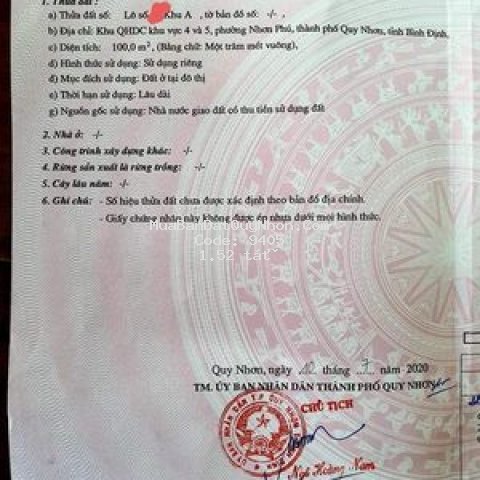 1. Thửa đất:
a) Thửa đất số: Lô số Khu A , tờ bản đồ số: -/- ,
b) Địa chỉ: Khu QHDC khu vực 4 và 5, phường Nhơn Phú, thành phố Quy Nhơn, tỉnh Bình Định,
c) Diện tích: 100,0 m², (Bằng chữ: Một trăm mét vuông),
d) Hình thức sử dụng: Sử dụng riêng
đ) Mục đích sử dụng: Đất ở tại đô thị
e) Thời hạn sử dụng: Lâu dài
g) Nguồn gốc sử dụng: Nhà nước giao đất có thu tiền sử dụng đất
2. Nhà ở: -/-
3. Công trình xây dựng khác: -/-
4. Rừng sản xuất là rừng trồng: -/-
5. Cây lâu năm: -/-
6. Ghi chú: - Số hiệu thửa đất chưa được xác định theo bản đồ địa chính.
- Giấy chứng nhận này không được ép nhựa dưới mọi hình thức.
MuaBanDatQuyNhon.com
Code: 9405
1.52 tất
Quy Nhơn, ngày 12 tháng 7 năm 2020
TM. ỦY BAN NHÂN DÂN THÀNH PHỐ QUY NHƠN
CHỦ TỊCH
Ngô Hoàng Nam